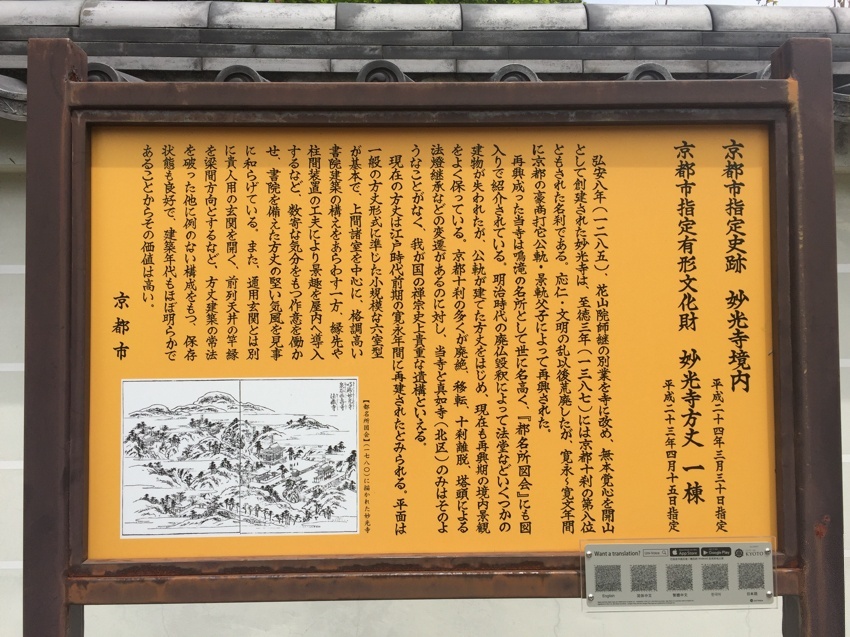 京都市指定史跡　妙光寺境内
平成二十四年三月三十日指定
京都市指定有形文化財　妙光寺方丈　一棟
平成二十三年四月十五日指定
弘安八年（一二八五）、花山院師継の別業を寺に改め、無本覚心を開山
として創建された妙光寺は、至徳三年（一三八七）には京都十刹の第八位
ともされた名刹である。応仁・文明の乱以後荒廃したが、寛永〜寛文年間
に京都の豪商打它公軌・景軌父子によって再興された。
再興成った当寺は鳴滝の名所として世に名高く、『都名所図会』にも図
入りで紹介されている。明治時代の廃仏毀釈によって法堂などいくつかの
建物が失われたが、公軌が建てた方丈をはじめ、現在も再興期の境内景観
をよく保っている。京都十刹の多くが廃絶、移転、十刹離脱、塔頭による
法燈継承などの変遷があるのに対し、当寺と真如寺（北区）のみはそのよ
うなことがなく、我が国の禅宗史上貴重な遺構といえる。
現在の方丈は江戸時代前期の寛永年間に再建されたとみられる。平面は
一般の方丈形式に準じた小規模な六室型
が基本で、上間諸室を中心に、格調高い
書院建築の構えをあらわす一方、縁先や
柱間装置の工夫により景趣を屋内へ導入
するなど、数寄な気分をもつ作意を働か
せ、書院を備えた方丈の堅い気風を見事
に和らげている。また、通用玄関とは別
に貴人用の玄関を開く、前列天井の竿縁
を梁間方向とするなど、方丈建築の常法
を破った他に例のない構成をもつ。保存
状態も良好で、建築年代もほぼ明らかで
あることからその価値は高い。
京都市
【都名所図会】（一七八〇）に描かれた妙光寺
Want a translation?
App Store
Google Play
KYOTO
English